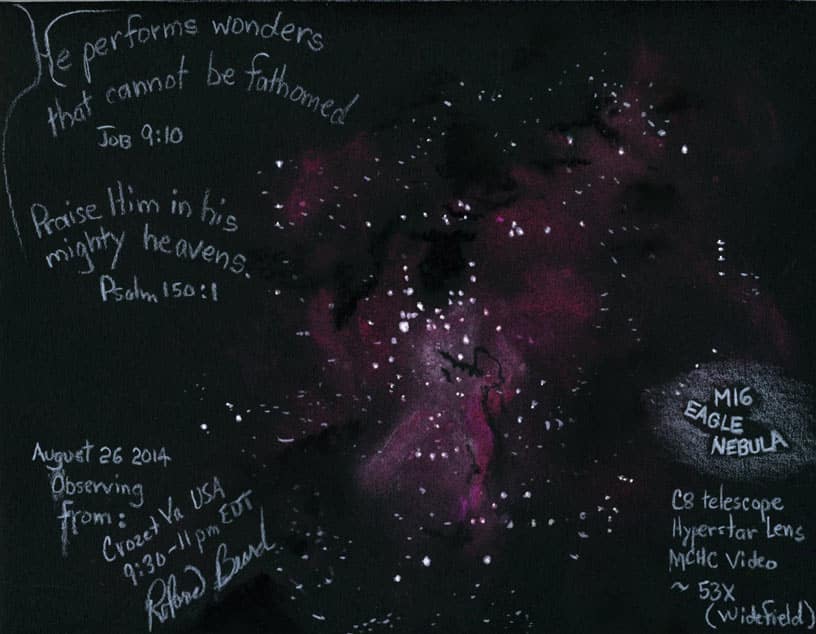 He performs wonders
that cannot be fathomed
Job 9:10
Praise Him in his
mighty heavens.
Psalm 150:1
M16
EAGLE
NEBULA
August 26 2014
Observing
from:
Crozet Va USA
9:30-11 pm EDT
C8 telescope
Hyperstar Lens
MCHC Video
~ 53X
(Widefield)